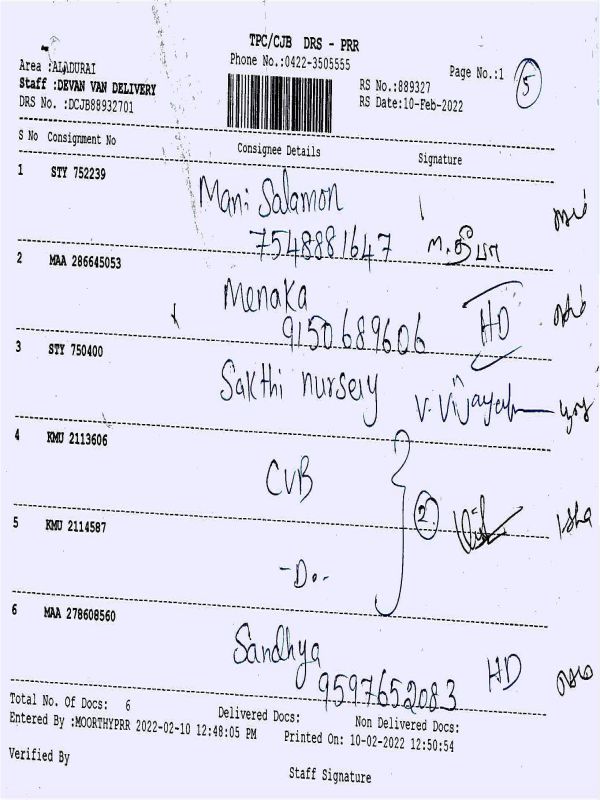 TPC/CJB DRS - PRR
Area :ALADURAI
Phone No.:0422-3505555
Page No.:1
5
Staff :DEVAN VAN DELIVERY
RS No.:889327
DRS No. :DCJB88932701
RS Date:10-Feb-2022
S No Consignment No Consignee Details Signature
1 STY 752239 Mani Salamon
7548881647 ம.தீபா
2 MAA 286645053 Menaka HD
9150689606
3 STY 750400 Sakthi nursery
4 KMU 2113606 CVB 2
5 KMU 2114587 -Do-
6 MAA 278608560 Sandhya HD
9597652083
Total No. Of Docs: 6 Delivered Docs: Non Delivered Docs:
Entered By :MOORTHYPRR 2022-02-10 12:48:05 PM Printed On: 10-02-2022 12:50:54
Verified By
Staff Signature